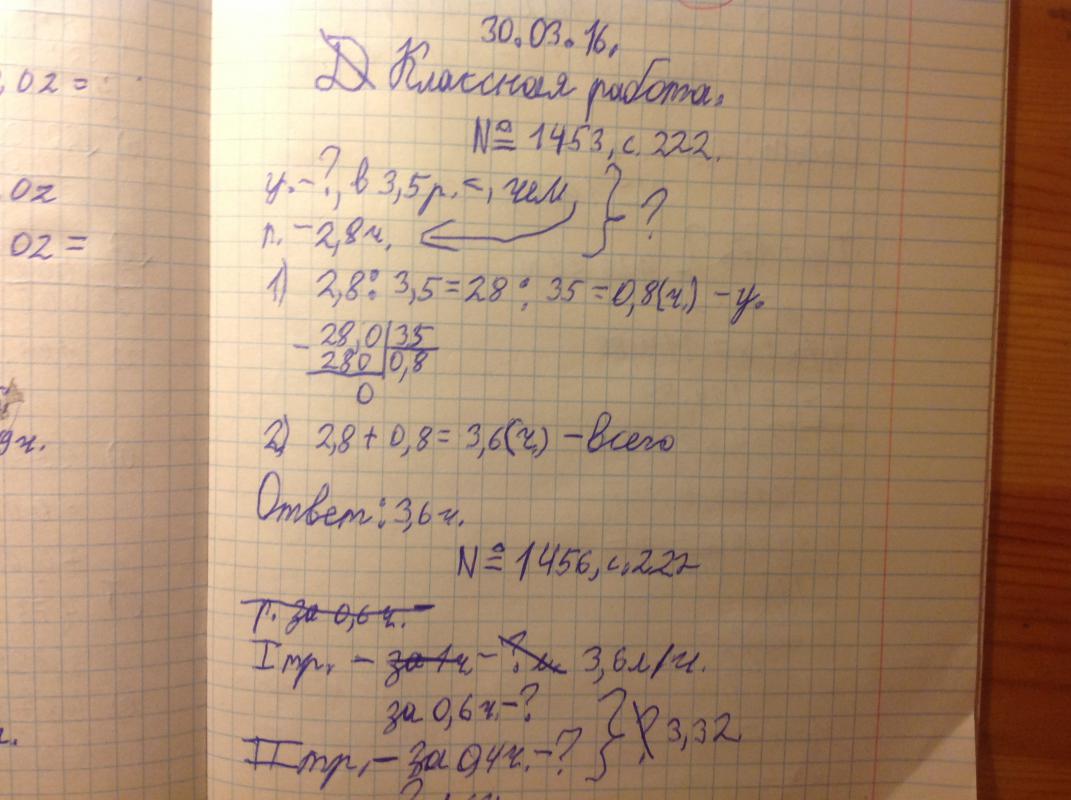 , 02 =
02
02 =
9ч.
30.03.16.
Классная работа.
№ 1453, с. 222.
у. - ?, в 3,5 р. <, чем } ?
п. - 2,8ч.
1) 2,8 : 3,5 = 28 : 35 = 0,8(ч.) - у.
- 28,0 | 35
280 | 0,8
0
2) 2,8 + 0,8 = 3,6(ч.) - всего
Ответ: 3,6 ч.
№ 1456, с. 222
г. за 0,6 ч. -
I тр. - за 1ч - ? 3,6 м/ч.
за 0,6 ч. - ?
II тр. - за 0,4ч. - ? } ? 3,32